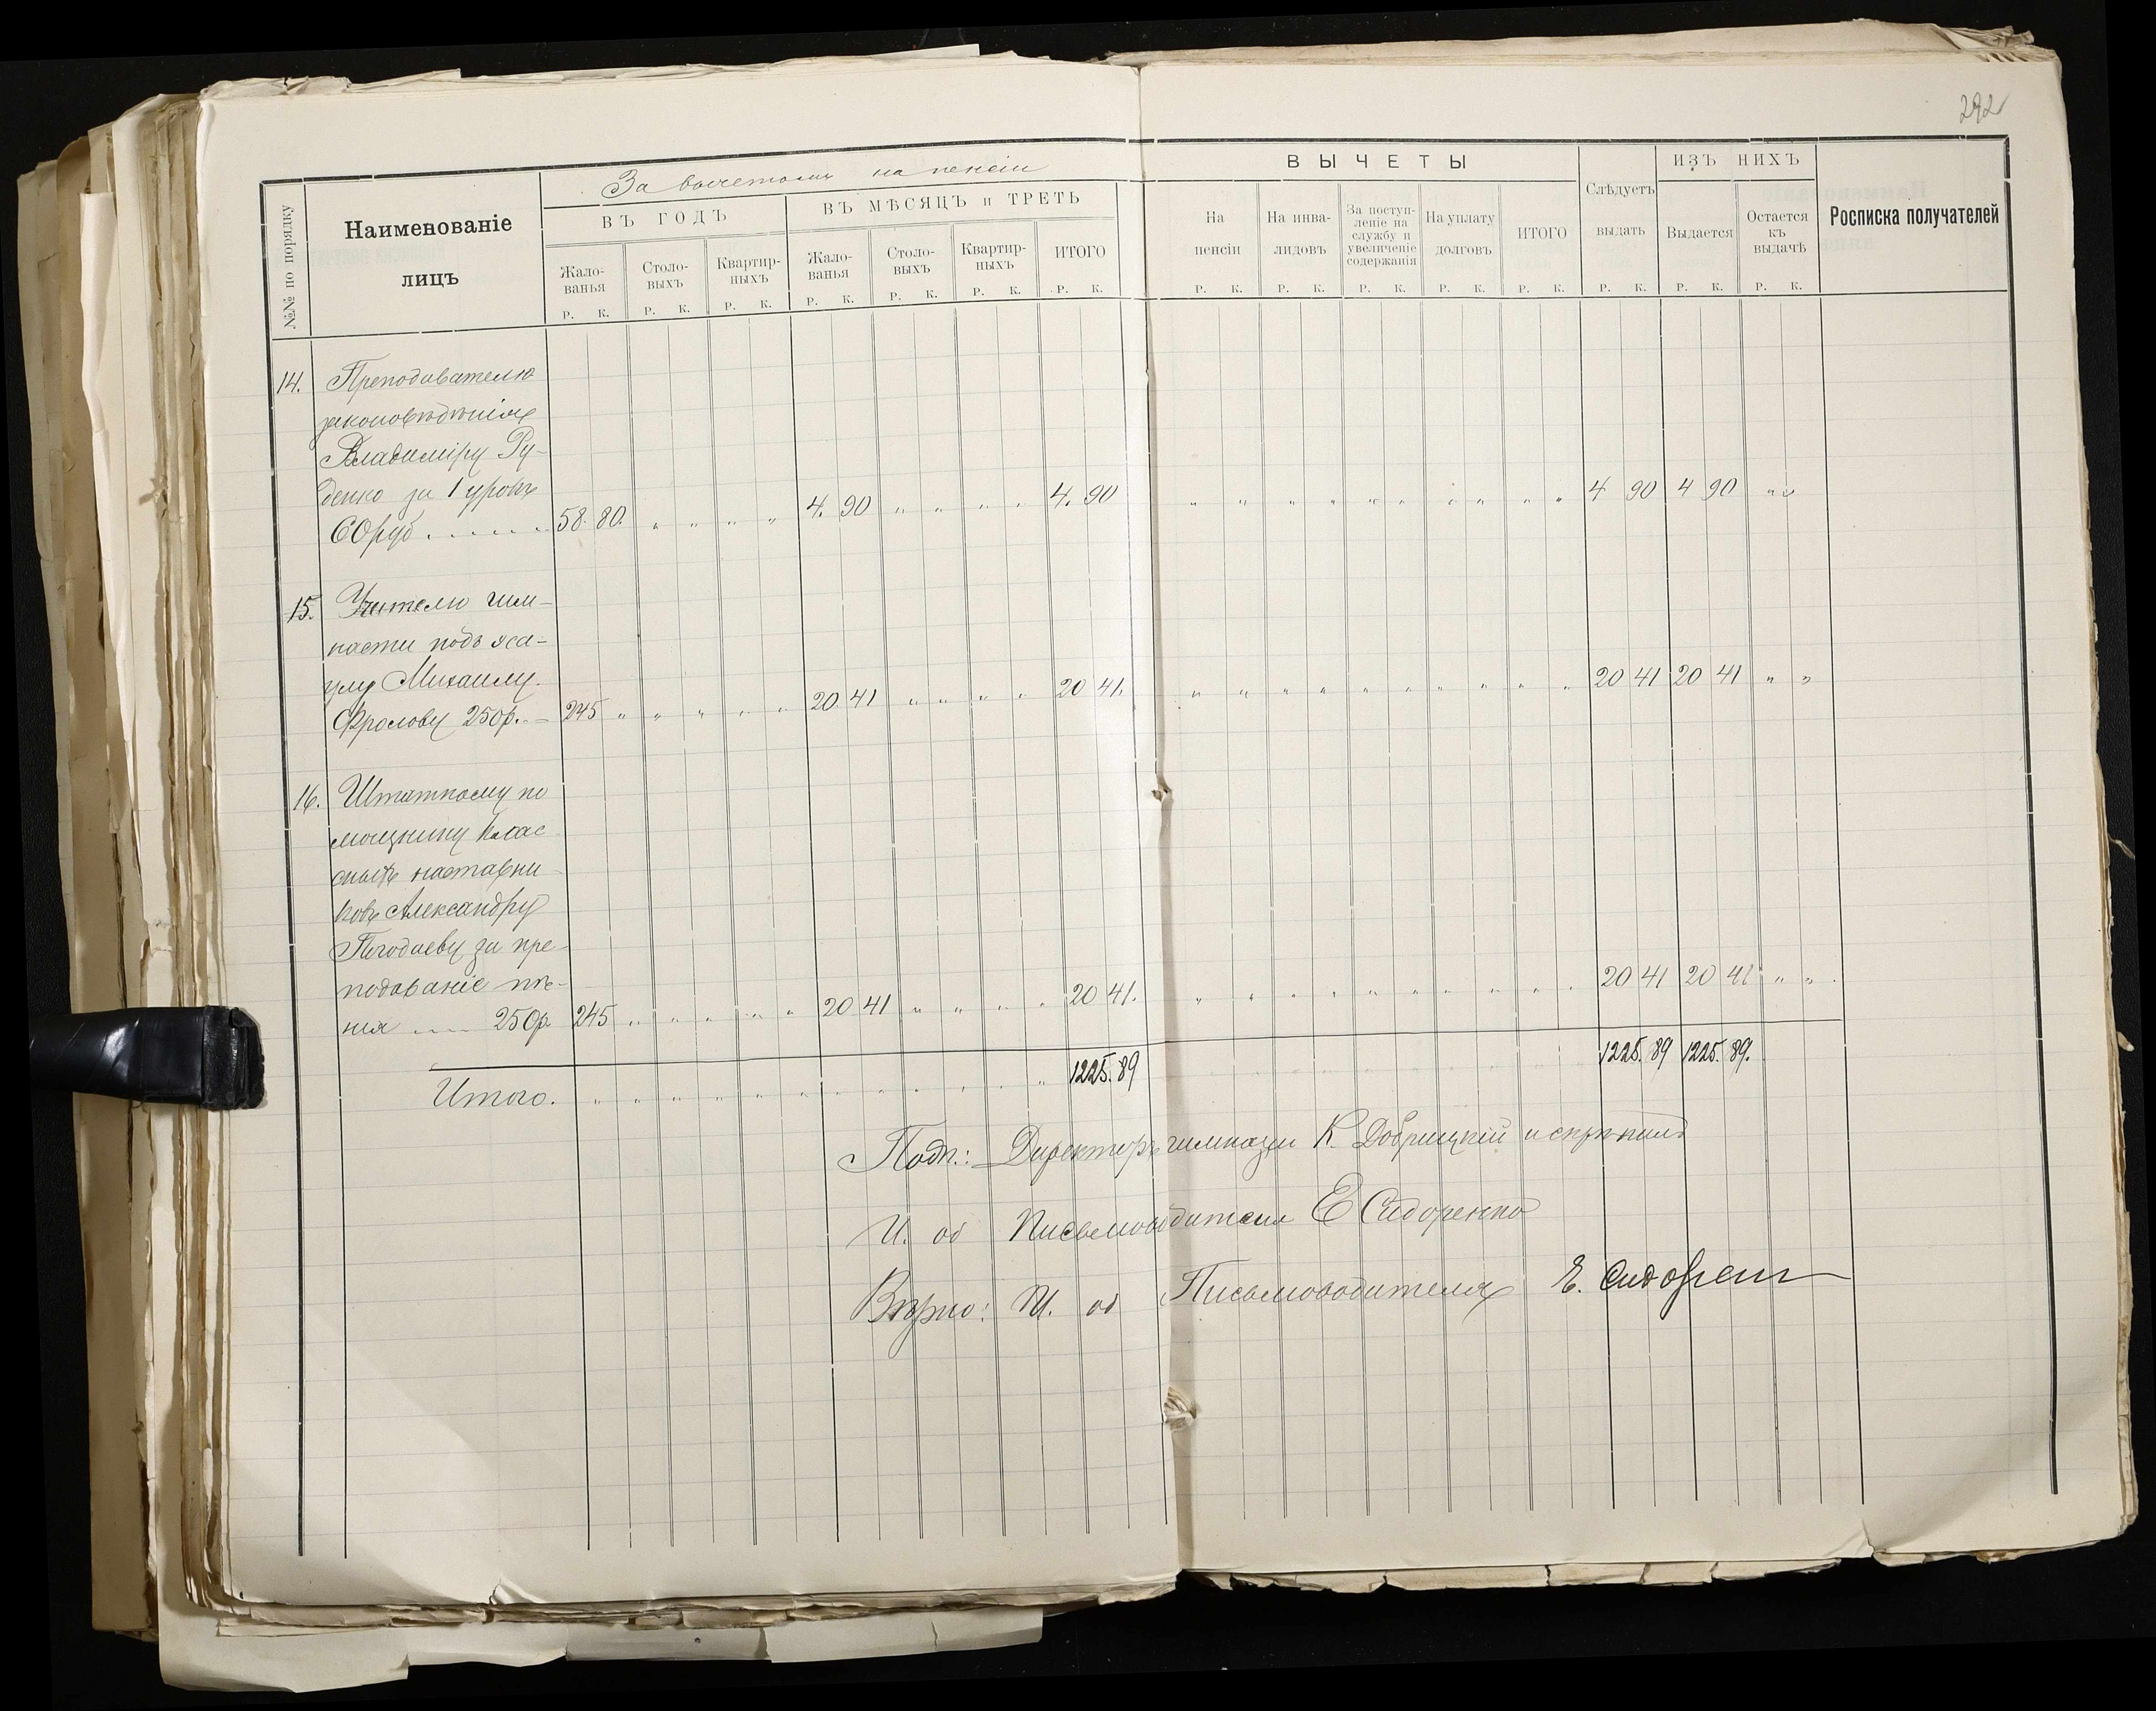 292
За вычетомъ на пенсіи
№№ по порядку
Наименованіе
лицъ
ВЪ ГОДЪ
ВЪ МѢСЯЦЪ и ТРЕТЬ
Жало-
ванья
Столо-
выхъ
Квартир-
ныхъ
Жало-
ванья
Столо-
выхъ
Квартир-
ныхъ
ИТОГО
Р. К. Р. К. Р. К. Р. К. Р. К. Р. К. Р. К.
ВЫЧЕТЫ
На
пенсіи
На инва-
лидовъ
За поступ-
леніе на
службу и
увеличеніе
содержанія
На уплату
долговъ
ИТОГО
Слѣдуетъ
выдать
ИЗЪ НИХЪ
Выдается
Остается
къ
выдачѣ
Росписка получателей
Р. К. Р. К. Р. К. Р. К. Р. К. Р. К. Р. К. Р. К.
14. Преподавателю
законовѣдѣнія
Владиміру Ру-
денко за 1 урокъ
60 руб . . . . . 58. 80. " " " " 4. 90 " " " " 4. 90 " " " " " " " " " " 4 90 4 90 " "
15. Учителю гим-
настики подъ эса-
улу Михаилу
Фролову 250 р. — 245 " " " " " 20 41 " " " " 20 41. " " " " " " " " " " 20 41 20 41 " "
16. Штатному по
мощнику клас
сныхъ наставни
ковъ Александру
Погодаеву за пре-
подаваніе пѣ-
нія .... 250 р. 245 " " " " " 20 41 " " " " 20 41. " " " " " " " " " " 20 41 20 41 " "
Итого. " " " " " " " " " " " " 1225. 89 1225. 89 1225. 89.
Подп.: Директоръ гимназіи К. Добрицкій и скрѣпилъ
И. об Письмоводителя Е Сидоренко
Вѣрно: И. об Письмоводителя Е. Сидорен